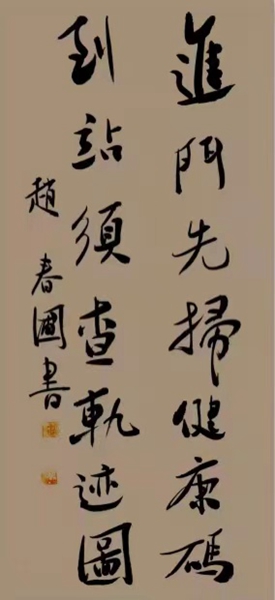 進門先掃健康碼
到站須查軌迹圖
趙春圃書